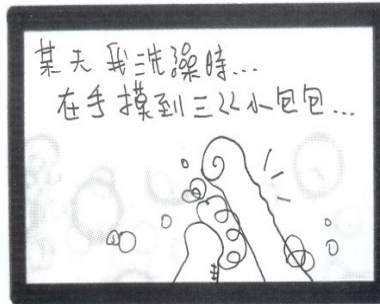 某天我洗澡時...
在手摸到三ㄍ小包包...